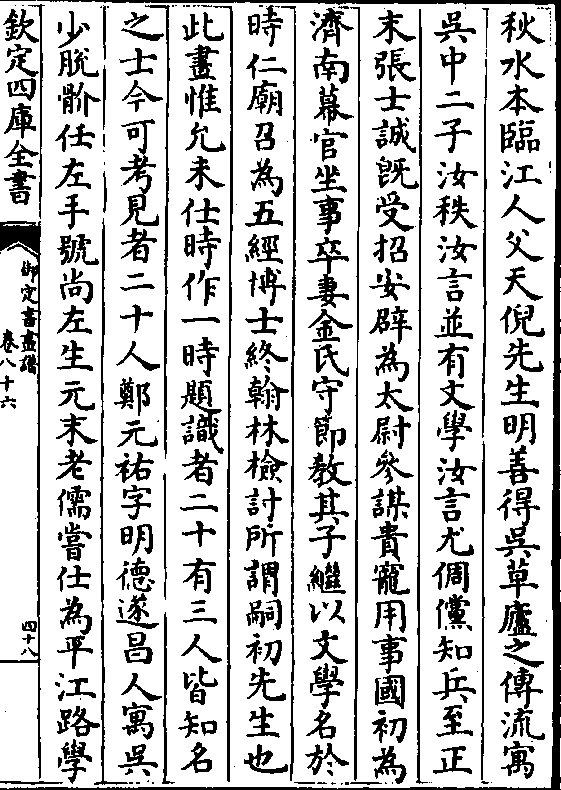 秋水本臨江人父天倪先生明善得吳草廬之傳流寓
吳中二子汝秩汝言並有文學汝言尤倜儻知兵至正
末張士誠既受招安辟為太尉參謀貴寵用事國初為
濟南幕官坐事卒妻金氏守節教其子繼以文學名於
時仁廟召為五經博士終翰林檢討所謂嗣初先生也
此畫惟允未仕時作一時題識者二十有三人皆知名
之士今可考見者二十人鄭元祐字明德遂昌人寓吳
少脫骱任左手號尚左生元末老儒嘗仕為平江路學
欽定四庫全書
御定書畫譜
卷八十六
四十八